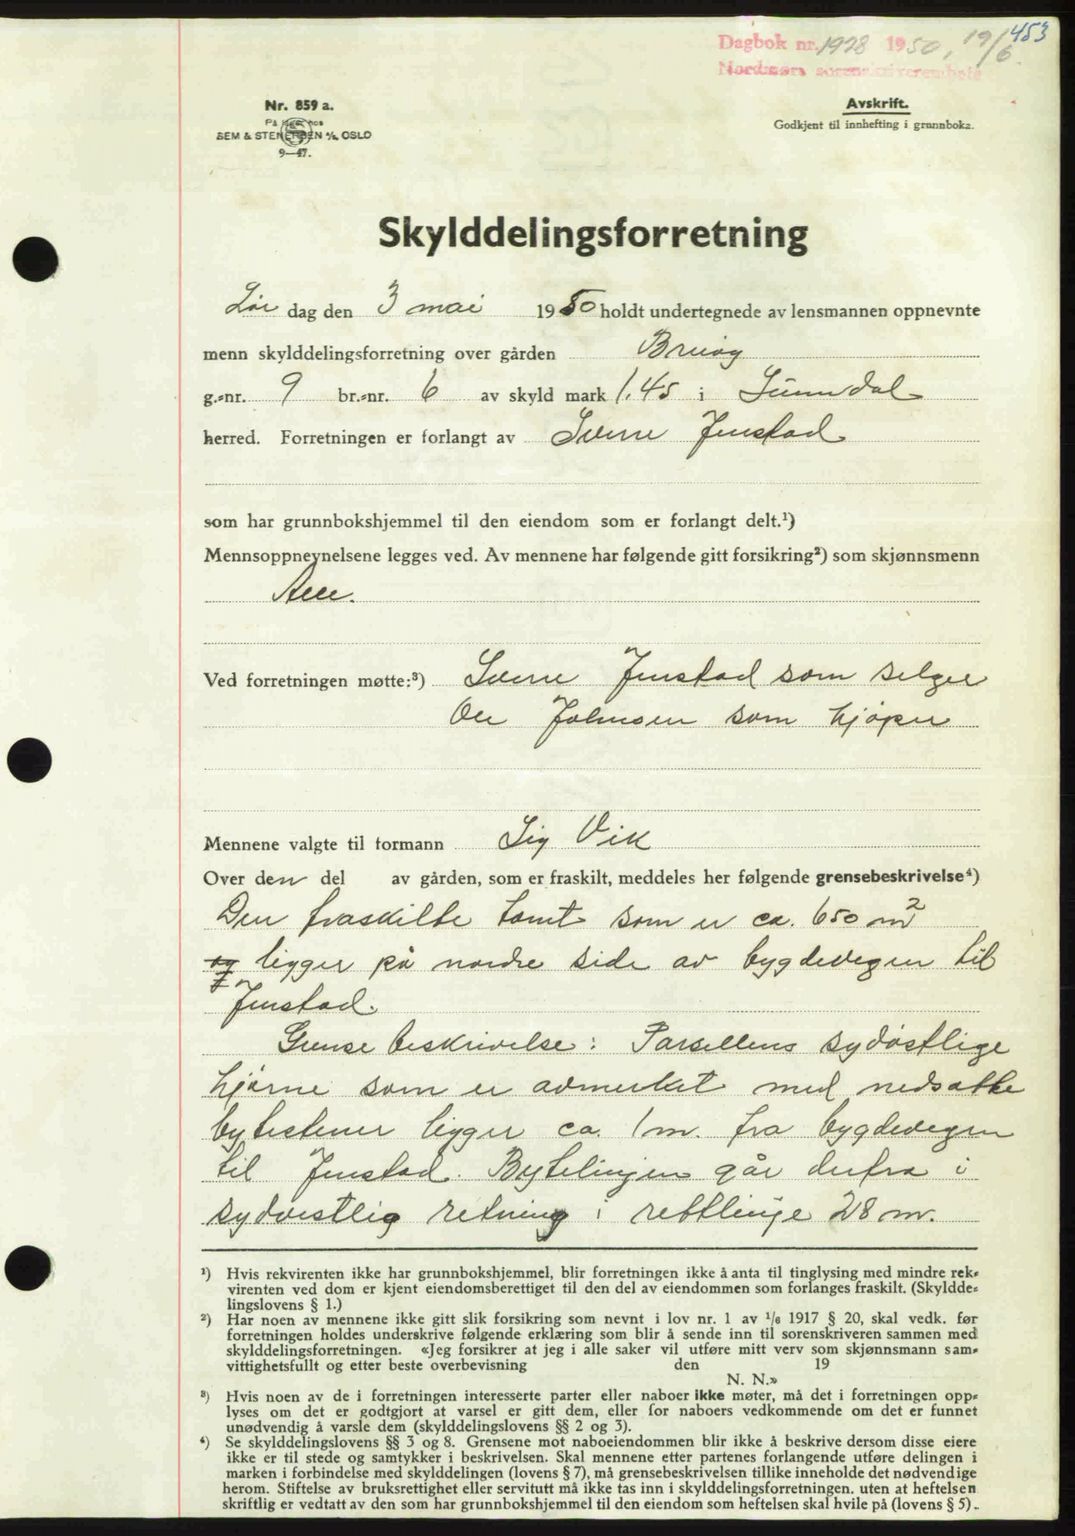 453
Dagbok nr. 1928 1950, 19/6.
Nordmørs sorenskriverembete
Nr. 859 a.
På lager hos
SEM & STENERSEN A/S, OSLO
9—47.
Avskrift.
Godkjent til innhefting i grunnboka.
Skylddelingsforretning
Lør dag den 3 mai 1950 holdt undertegnede av lensmannen oppnevnte
menn skylddelingsforretning over gården
g.-nr. 9 br.-nr. 6 av skyld mark 1.45 i Sunndal
herred. Forretningen er forlangt av Sverre Jenstad
som har grunnbokshjemmel til den eiendom som er forlangt delt.¹)
Mennsoppnevnelsene legges ved. Av mennene har følgende gitt forsikring²) som skjønnsmenn
Alle.
Ved forretningen møtte:³) Sverre Jenstad som selger
Ole Johnsen som kjøper
Mennene valgte til formann Sig Vik
Over den del av gården, som er fraskilt, meddeles her følgende grensebeskrivelse⁴)
Den fraskilte tomt som er ca. 650 m²
og ligger på nordre side av bygdevegen til
Jenstad.
Grense beskrivelse: Parsellens sydøstlige
hjørne som er avmerket med nedsatte
bytestener ligger ca. 1 m. fra bygdevegen
til Jenstad. Bytelinjen går derfra i
sydvestlig retning i rettlinje 28 m.
¹) Hvis rekvirenten ikke har grunnbokshjemmel, blir forretningen ikke å anta til tinglysing med mindre rek-
virenten ved dom er kjent eiendomsberettiget til den del av eiendommen som forlanges fraskilt. (Skyldde-
lingslovens § 1.)
²) Har noen av mennene ikke gitt slik forsikring som nevnt i lov nr. 1 av 1/6 1917 § 20, skal vedk. før
forretningen holdes underskrive følgende erklæring som blir å sende inn til sorenskriveren sammen med
skylddelingsforretningen. «Jeg forsikrer at jeg i alle saker vil utføre mitt verv som skjønnsmann sam-
vittighetsfullt og etter beste overbevisning den 19
N. N.»
³) Hvis noen av de i forretningen interesserte parter eller naboer ikke møter, må det i forretningen opp-
lyses om det er godtgjort at varsel er gitt dem, eller for naboers vedkommende om det er funnet
unødvendig å varsle dem (skylddelingslovens §§ 2 og 3).
⁴) Se skylddelingslovens §§ 3 og 8. Grensene mot naboeiendommen blir ikke å beskrive dersom disse eiere
ikke er til stede og samtykker i beskrivelsen. Skal mennene etter partenes forlangende utføre delingen i
marken i forbindelse med skylddelingen (lovens § 7), må grensebeskrivelsen tillike inneholde det nødvendige
herom. Stiftelse av bruksrettighet eller servitutt må ikke tas inn i skylddelingsforretningen. uten at heftelsen
skriftlig er vedtatt av den som har grunnbokshjemmel til den eiendom som heftelsen skal hvile på (lovens § 5).